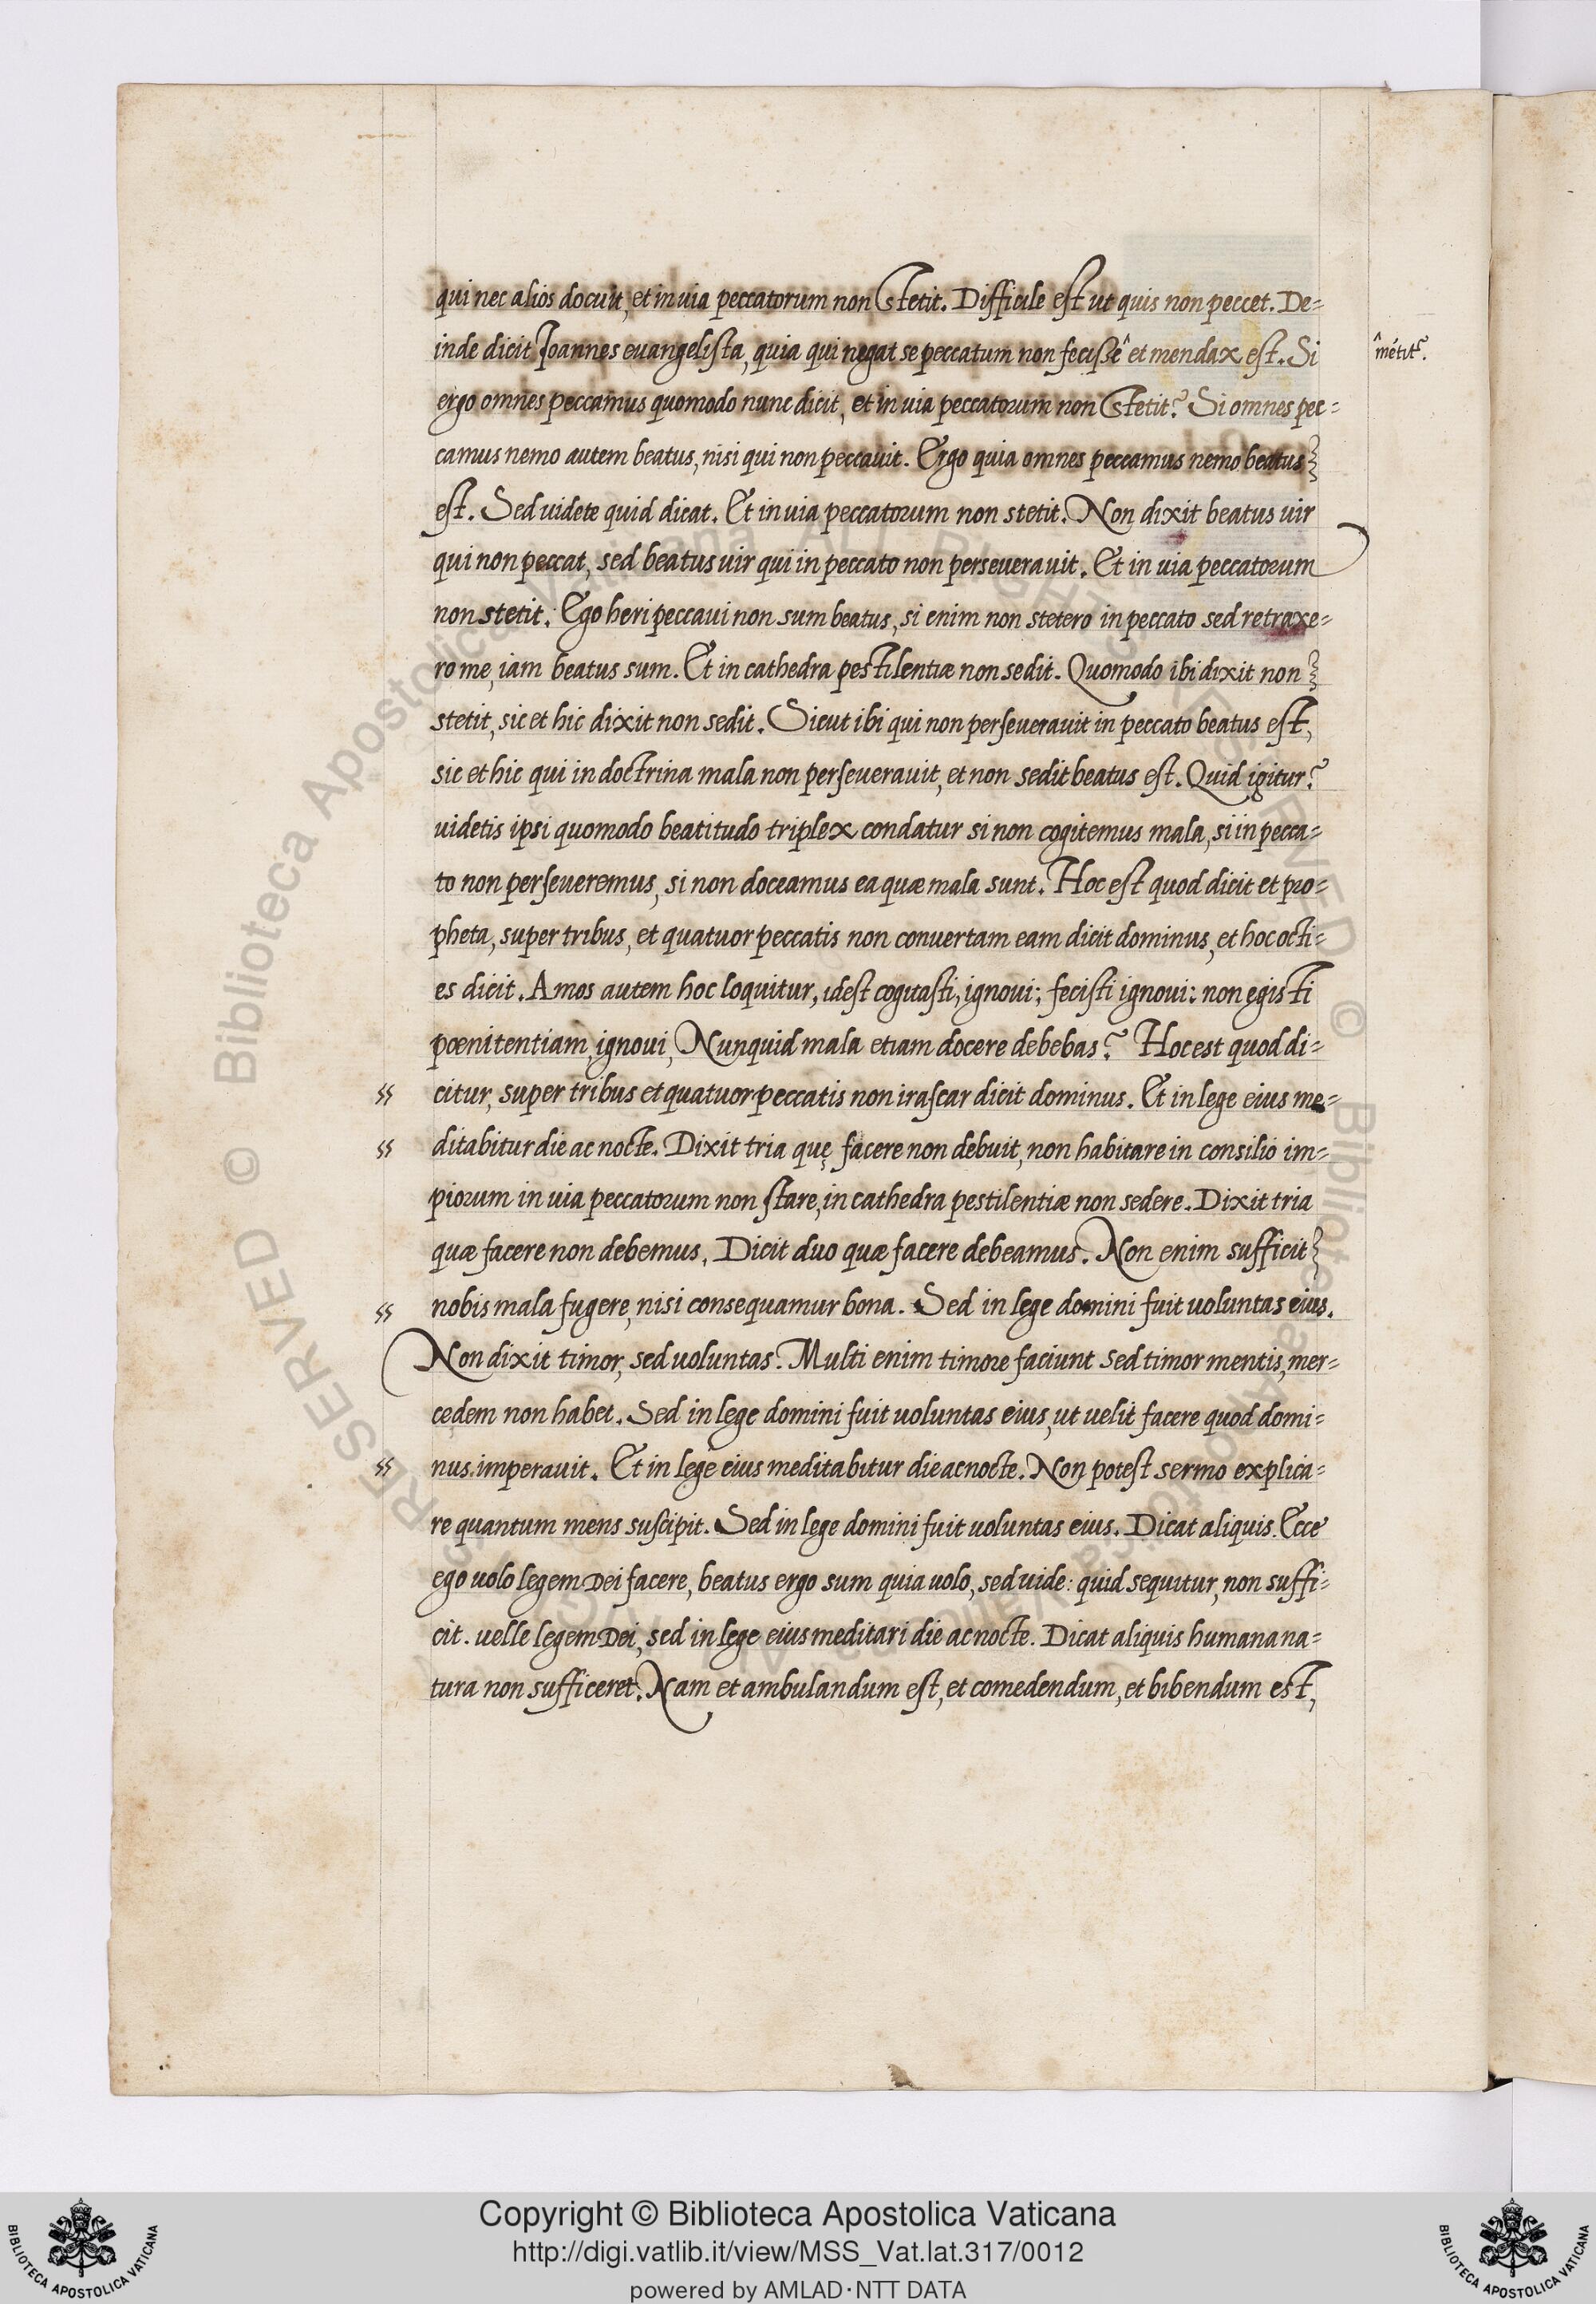 qui nec alios docuit, et in uia peccatorum non stetit. Difficile est ut quis non peccet. De=
inde dicit Joannes euangelista, quia qui negat se peccatum non fecisse^ et mendax est. Si
^métit~.
ergo omnes peccamus quomodo nunc dicit, et in uia peccatorum non stetit? Si omnes pec=
camus nemo autem beatus, nisi qui non peccauit. Ergo quia omnes peccamus nemo beatus
est. Sed uidete quid dicat. Et in uia peccatorum non stetit. Non dixit beatus uir
qui non peccat, sed beatus uir qui in peccato non perseuerauit. Et in uia peccatorum
non stetit. Ego heri peccaui non sum beatus, si enim non stetero in peccato sed retraxe=
ro me, iam beatus sum. Et in cathedra pestilentiæ non sedit. Quomodo ibi dixit non
stetit, sic et hic dixit non sedit. Sicut ibi qui non perseuerauit in peccato beatus est,
sic et hic qui in doctrina mala non perseuerauit, et non sedit beatus est. Quid igitur?
uidetis ipsi quomodo beatitudo triplex condatur si non cogitemus mala, si in pecca=
to non perseueremus, si non doceamus ea quæ mala sunt. Hoc est quod dicit et pro=
pheta, super tribus, et quatuor peccatis non conuertam eam dicit dominus, et hoc octi=
es dicit. Amos autem hoc loquitur, idest cogitasti, ignoui; fecisti ignoui: non egisti
pœnitentiam, ignoui, Nunquid mala etiam docere debebas? Hoc est quod di=
citur, super tribus et quatuor peccatis non irascar dicit dominus. Et in lege eius me=
ditabitur die ac nocte. Dixit tria quę facere non debuit, non habitare in consilio im=
piorum in uia peccatorum non stare, in cathedra pestilentiæ non sedere. Dixit tria
quæ facere non debemus. Dicit duo quæ facere debeamus. Non enim sufficit
nobis mala fugere, nisi consequamur bona. Sed in lege domini fuit uoluntas eius.
Non dixit timor, sed uoluntas. Multi enim timore faciunt sed timor mentis, mer=
cedem non habet. Sed in lege domini fuit uoluntas eius, ut uelit facere quod domi=
nus imperauit. Et in lege eius meditabitur die ac nocte. Non potest sermo explica=
re quantum mens suscipit. Sed in lege domini fuit uoluntas eius. Dicat aliquis. Ecce
ego uolo legem Dei facere, beatus ergo sum quia uolo, sed uide: quid sequitur, non suffi=
cit. uelle legem Dei, sed in lege eius meditari die ac nocte. Dicat aliquis humana na=
tura non sufficeret. Nam et ambulandum est, et comedendum, et bibendum est,
Copyright © Biblioteca Apostolica Vaticana
http://digi.vatlib.it/view/MSS_Vat.lat.317/0012
powered by AMLAD·NTT DATA
BIBLIOTECA APOSTOLICA VATICANA
BIBLIOTECA APOSTOLICA VATICANA